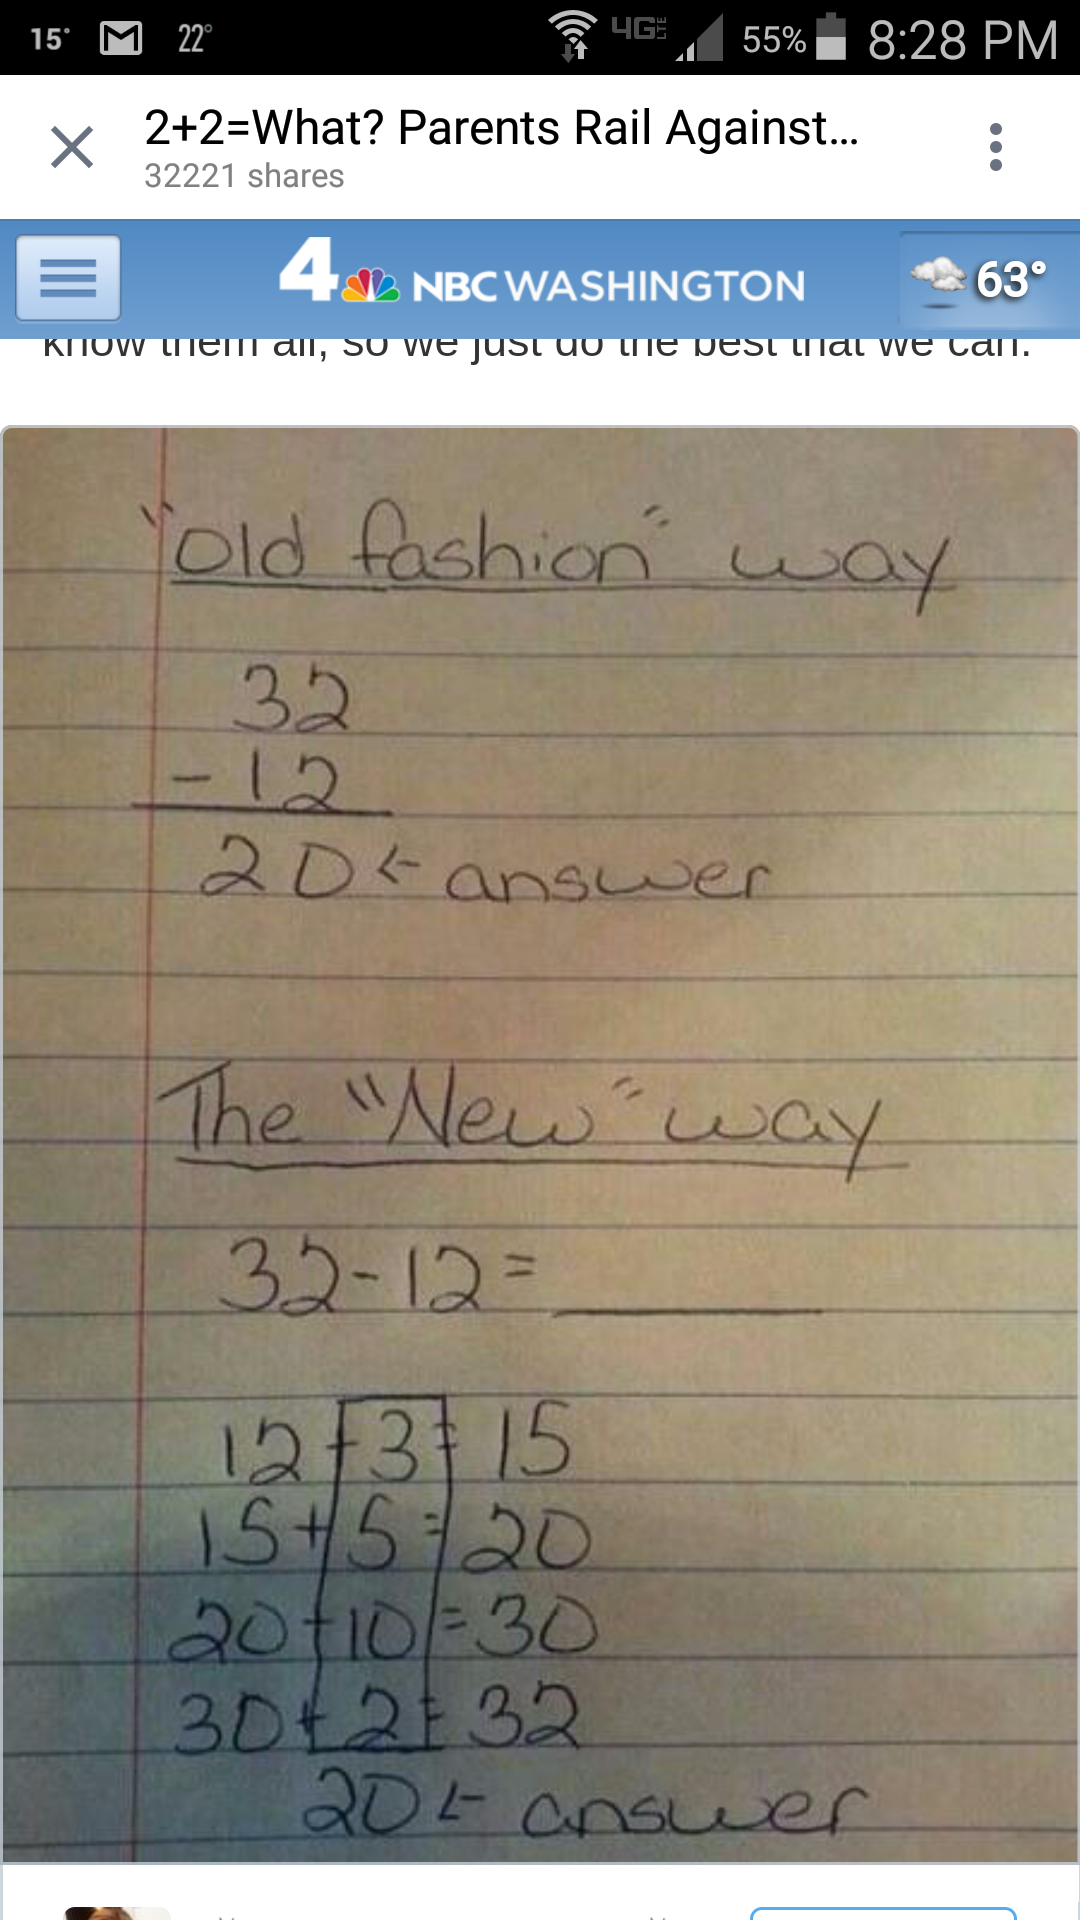 15°
22°
4G LTE
55%
8:28 PM
2+2=What? Parents Rail Against...
32221 shares
4 NBC WASHINGTON
63°
know them all, so we just do the best that we can.
"old fashion" way
32
- 12
20 ← answer
The "New" way
32-12=____
12+3=15
15+5=20
20+10=30
30+2=32
20 ← answer